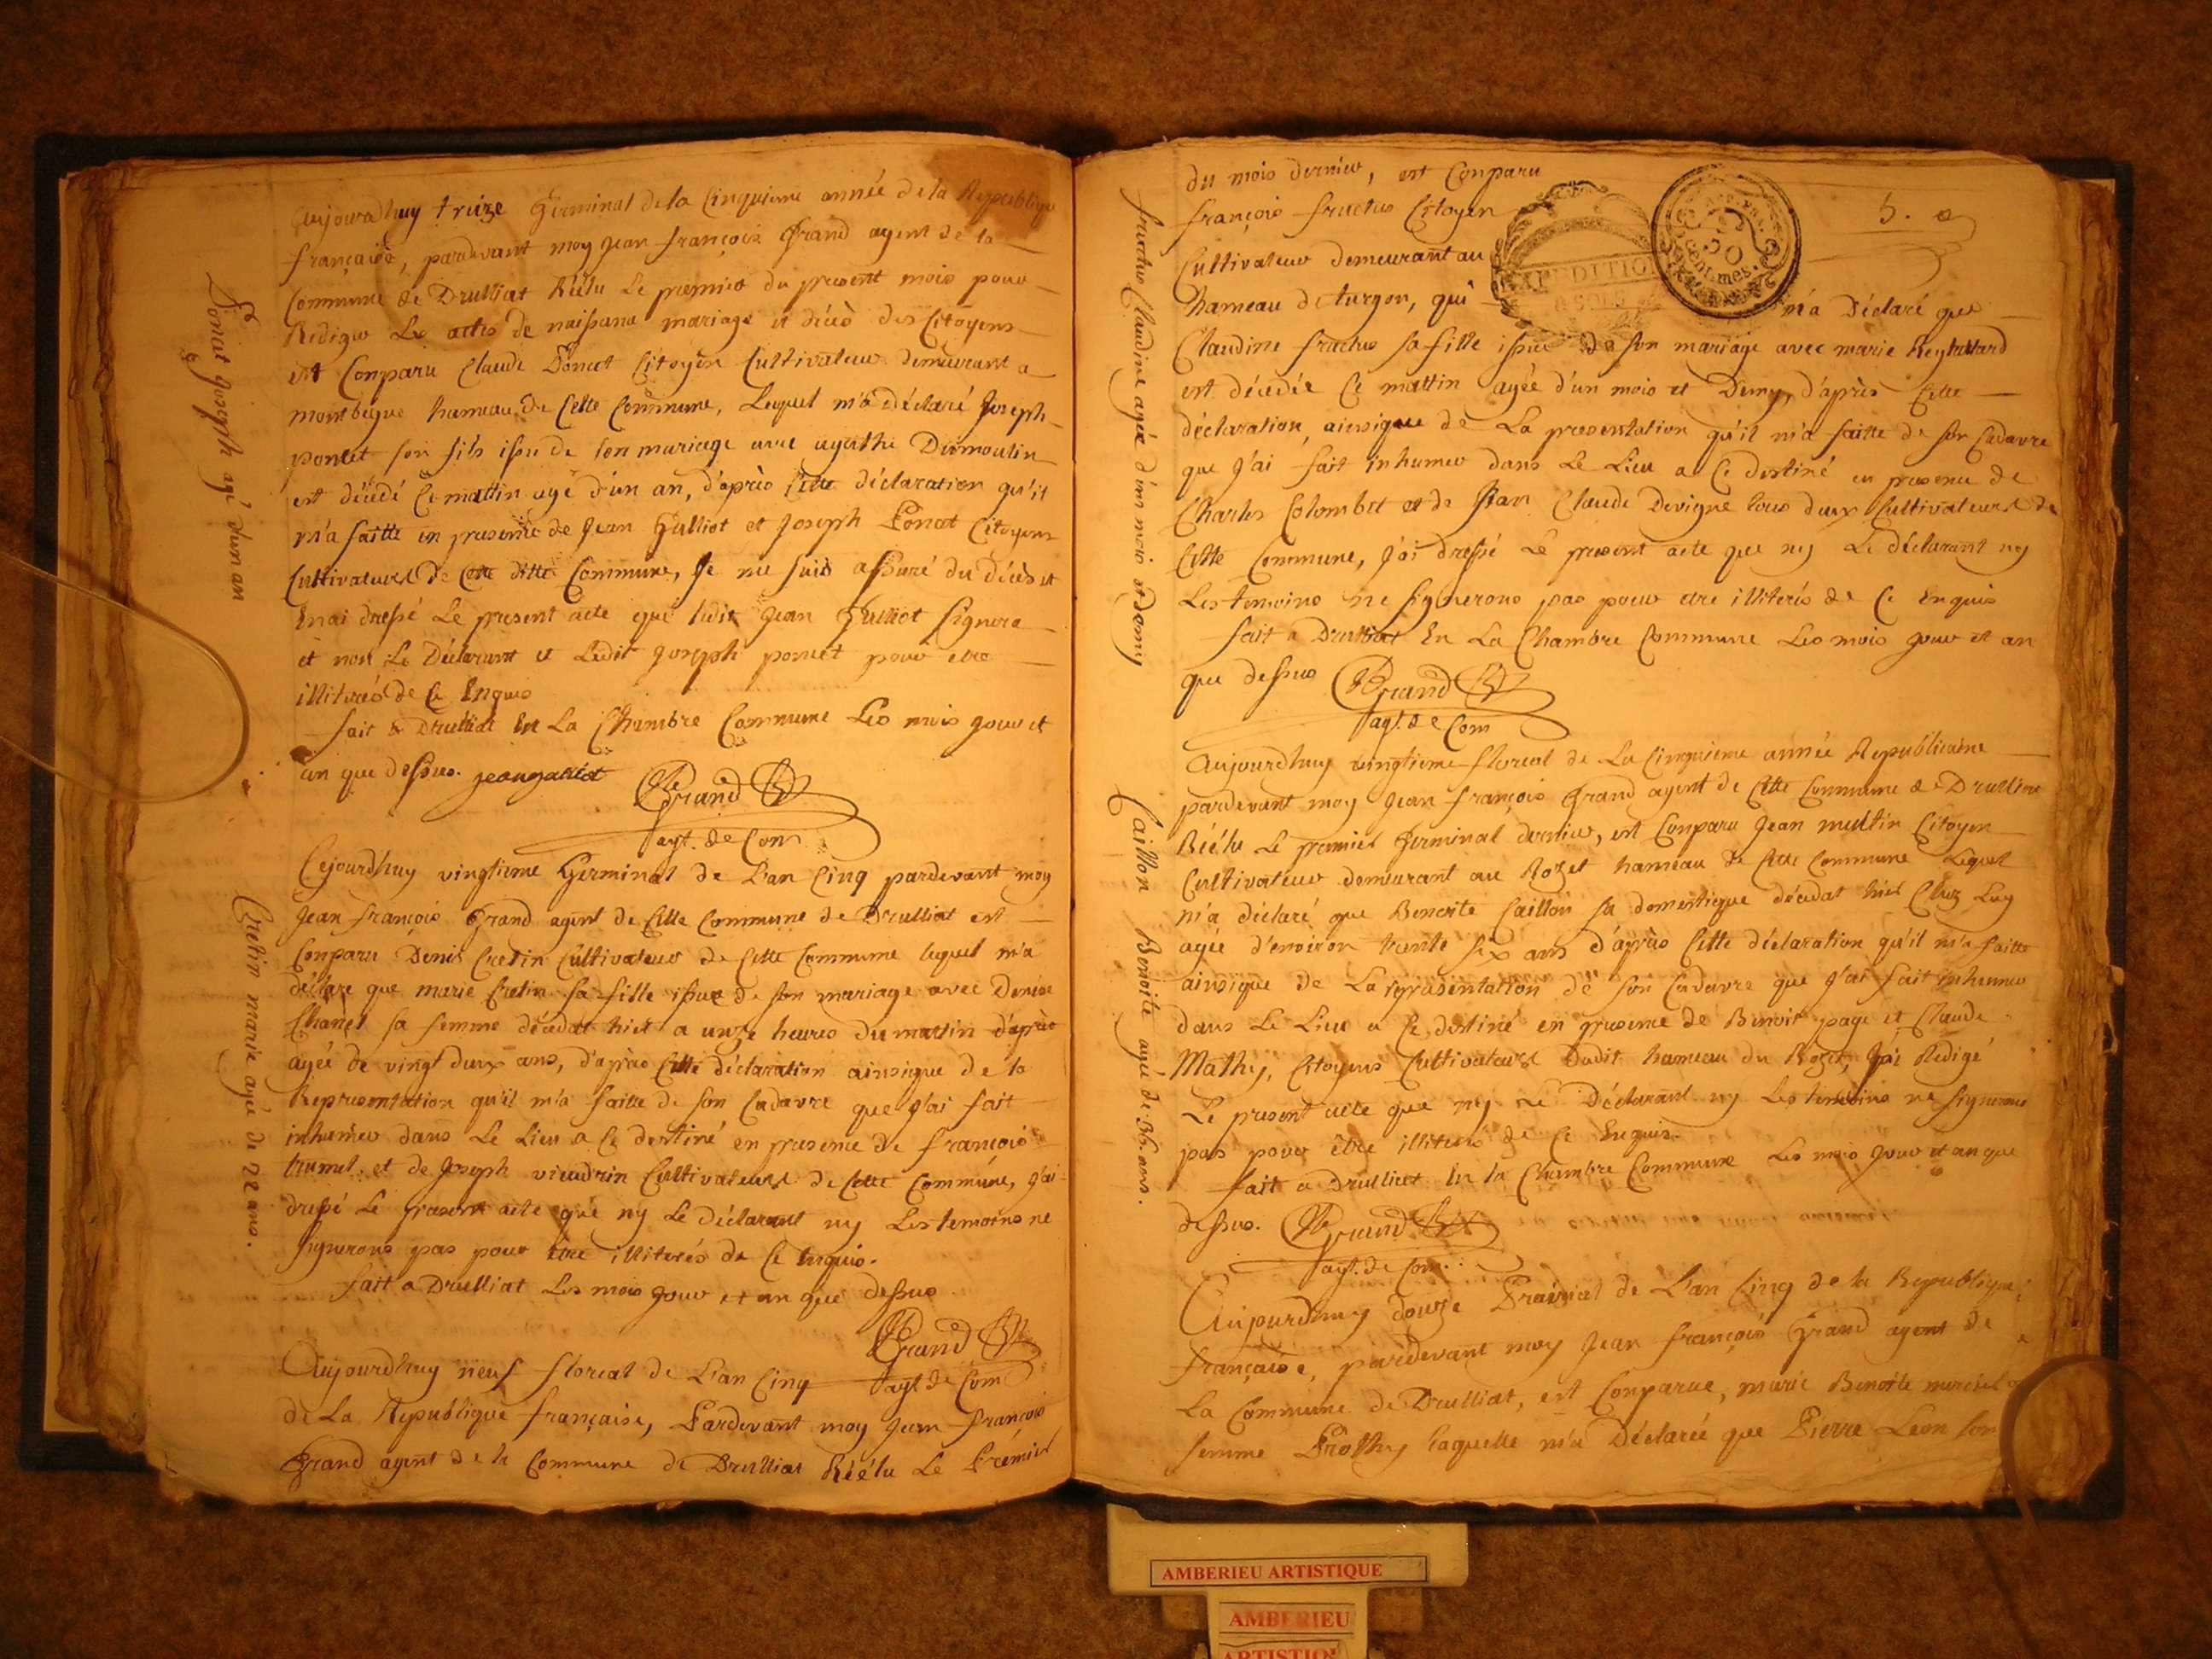 aujourdhuy treize Germinal de la Cinquieme année de la Republique
française, pardevant moy Jean françois Grand agent de la
Commune de Druilliat Réélu Le premier du present mois pour
Rediger Les actes de naissance mariage et décès des Citoyens
est Conparu Claude Poncet Citoyen Cultivateur demeurant a
montbegue hameau de Cette Commune, Lequel m'a déclaré Joseph
poncet son fils issu de son mariage avec agathe Dumoulin
est décédé Ce mattin agé d'un an, d'après Cette déclaration qu'il
m'a faitte en presence de Jean Gulliot et Joseph Poncet Citoyens
Cultivateurs de Cette ditte Commune, Je me suis assuré du décès et
Enai dressé Le present acte que ledit Jean Gulliot Signera
et non Le Déclarant et Ledit Joseph poncet pour etre
illiterés de Ce Enquis
fait a Druilliat En La Chambre Commune Les mois jour et
an que dessus. Grand
agt. de Com
Poncet Joseph agé d'un an
Cejourdhuy vingtieme Germinal de L'an Cinq pardevant moy
Jean françois Grand agent de Cette Commune de Druilliat est
Conparu Denis Cretin Cultivateur de Cette Commune lequel m'a
déclare que marie Cretin sa fille issue de son mariage avec Denise
Chanel sa femme décédat hier a unze heures du mattin d'après
agée de vingt deux ans, d'après Cette déclaration ainsique de la
Representation qu'il m'a faitte de son Cadavre que J'ai fait
inhumer dans Le Lieu a Ce destiné en presence de françois
et de Joseph vieudrin Cultivateurs de Cette Commune, J'ai
dressé Le present acte que ny Le déclarant ny Les temoins ne
signerons pas pour être illiterés de Ce Enquis.
fait a Druilliat Les mois jour et an que dessus
Grand
agt de Com
Cretin marie agée de 22 ans.
Aujourdhuy neuf floreal de L'an Cinq
de La Republique française, Pardevant moy Jean françois
Grand agent de la Commune de Druilliat Réélu Le Premier
5.
50
Centimes.
du mois dernier, est Conparu
françois fructus Citoyen
Cultivateur demeurant au
hameau de turgon, qui m'a Déclaré que
Claudine fructus sa fille issue de son mariage avec marie
est décédée Ce mattin agée d'un mois et Demy, d'après Cette
déclaration, ainsique de La presentation qu'il m'a faitte de son Cadavre
que J'ai fait inhumer dans Le Lieu a Ce destiné en presence de
Charles Colombet et de Jean Claude Devigne tous deux Cultivateurs de
Cette Commune, J'ai dressé Le present acte que ny Le déclarant ny
Les temoins ne signerons pas pour etre illiterés de Ce Enquis
fait a Druilliat En La Chambre Commune Les mois jour et an
que dessus Grand
agt. de Com
fructus Claudine agée d'un mois et demy
Aujourdhuy vingtieme floreal de La Cinquieme année Republicaine
pardevant moy Jean françois Grand agent de Cette Commune de Druilliat
Réélu Le premier Germinal dernier, est Conparu Jean Citoyen
Cultivateur demeurant au Rozet hameau de Cette Commune Lequel
m'a déclaré que Benoite Caillon sa domestique décédat hier Chez Luy
agée d'environ trente six ans d'après Cette déclaration qu'il m'a faitte
ainsique de La représentation de son Cadavre que J'ai fait inhumer
dans Le Lieu a Ce destiné en presence de Benoit page et Claude
Mathy, Citoyens Cultivateurs Dudit hameau du Rozet, J'ai Redigé
Le present acte que ny Le Déclarant ny Les temoins ne signerons
pas pour être illiterés de Ce Enquis.
fait a Druilliat En la Chambre Commune Les mois jour et an que
dessus. Grand
agt. de Com.
Caillon Benoite agée de 36. ans.
Aujourdhuy douze Prairial de L'an Cinq de la Republique
française, pardevant moy Jean françois Grand agent de
La Commune de Druilliat, est Conparue, marie Benoite
femme Prothy laquelle m'a Déclarée que Pierre Leon son
AMBERIEU ARTISTIQUE
AMBERIEU
ARTISTIQUE